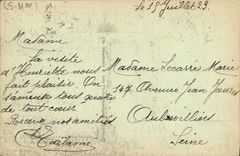 Le 15 Juillet 23.
Madame
La visite
d'Henriette nous
fait plaisir. On
tous quatre
de tout cœur
nos amitiés
Madame Lecarre Marie
147 Avenue Jean Jaurès
Aubervilliers
Seine